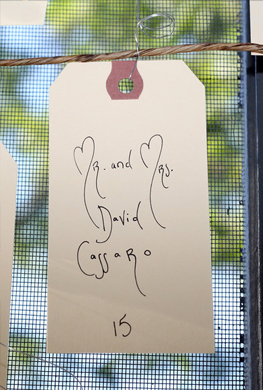 Mr. and Mrs.
David
Cassaro
15